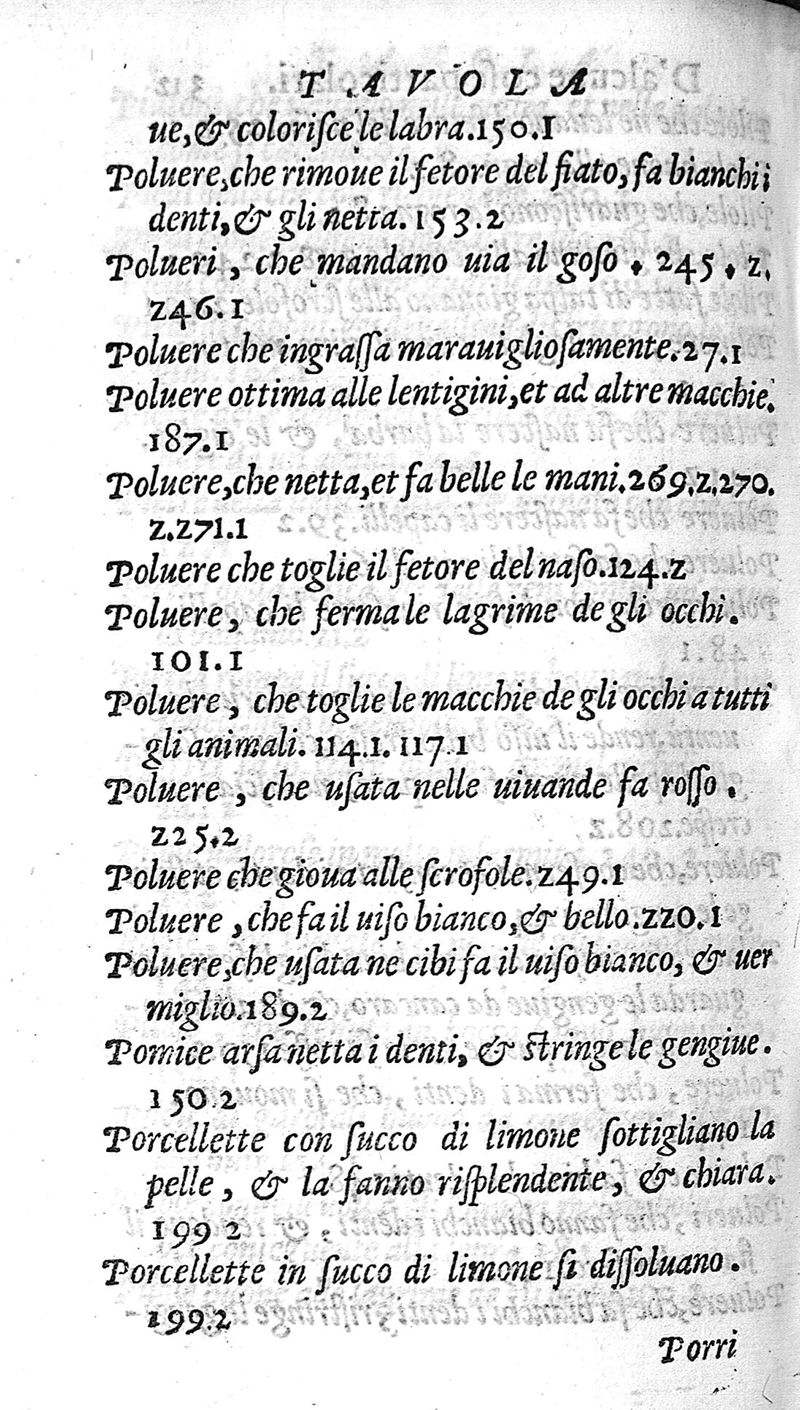 TAVOLA
ue,& coloriſce le labra.150.1
Poluere,che rimoue il fetore del fiato, fa bianchi i
denti,& gli netta. 153.2
Polueri, che mandano uia il goſo. 245. 2.
246.1
Poluere che ingraſſa marauiglioſamente.27.1
Poluere ottima alle lentigini,et ad altre macchie.
187.1
Poluere,che netta,et fa belle le mani.269.2.270.
2.271.1
Poluere che toglie il fetore del naſo.124.2
Poluere, che ferma le lagrime de gli occhi.
101.1
Poluere, che toglie le macchie de gli occhi a tutti
gli animali. 114.1. 117.1
Poluere, che uſata nelle uiuande fa roſſo.
225.2
Poluere che gioua alle ſcrofole.249.1
Poluere, che fa il uiſo bianco,& bello.220.1
Poluere,che uſata ne cibi fa il uiſo bianco, & uer
miglio.189.2
Pomice arſa netta i denti, & ſtringe le gengiue.
150.2
Porcellette con ſucco di limone ſottigliano la
pelle, & la fanno riſplendente, & chiara.
199 2
Porcellette in ſucco di limone ſi diſſoluano.
199.2
Porri